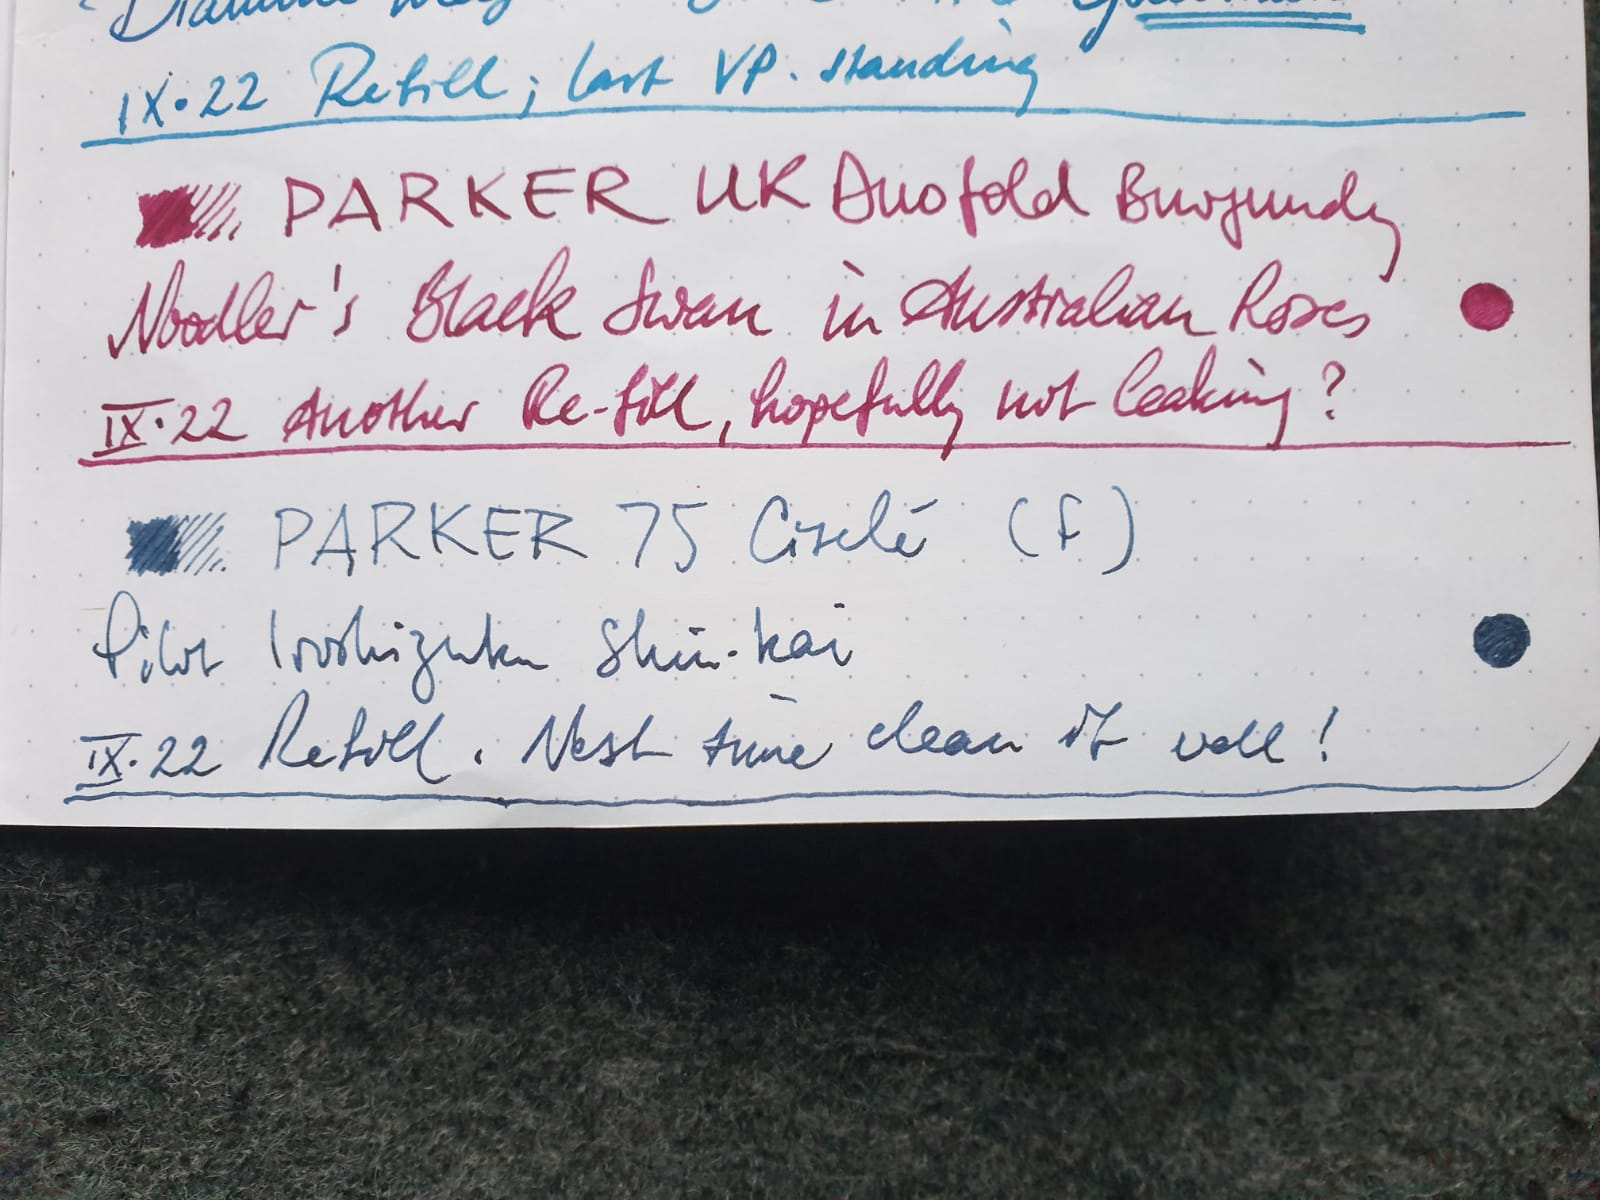 Diamine
IX.22 Refill; last VP. standing
PARKER UK Duofold Burgundy
Noodler's Black Swan in Australian Roses
IX.22 Another Re-fill, hopefully not leaking?
PARKER 75 Ciselé (F)
Pilot Iroshizuku Shin-kai
IX.22 Refill. Next time clean it well!